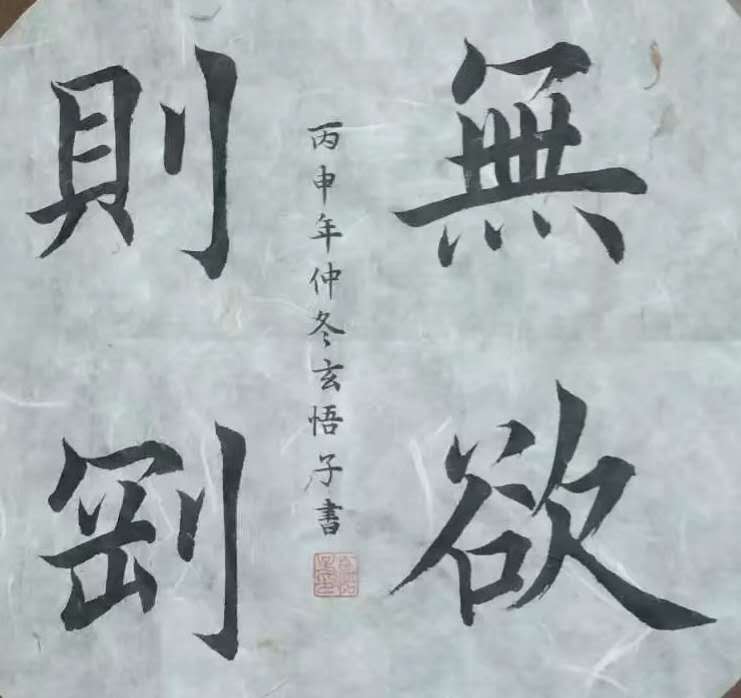 無欲
則剛
丙申年仲冬玄悟子書